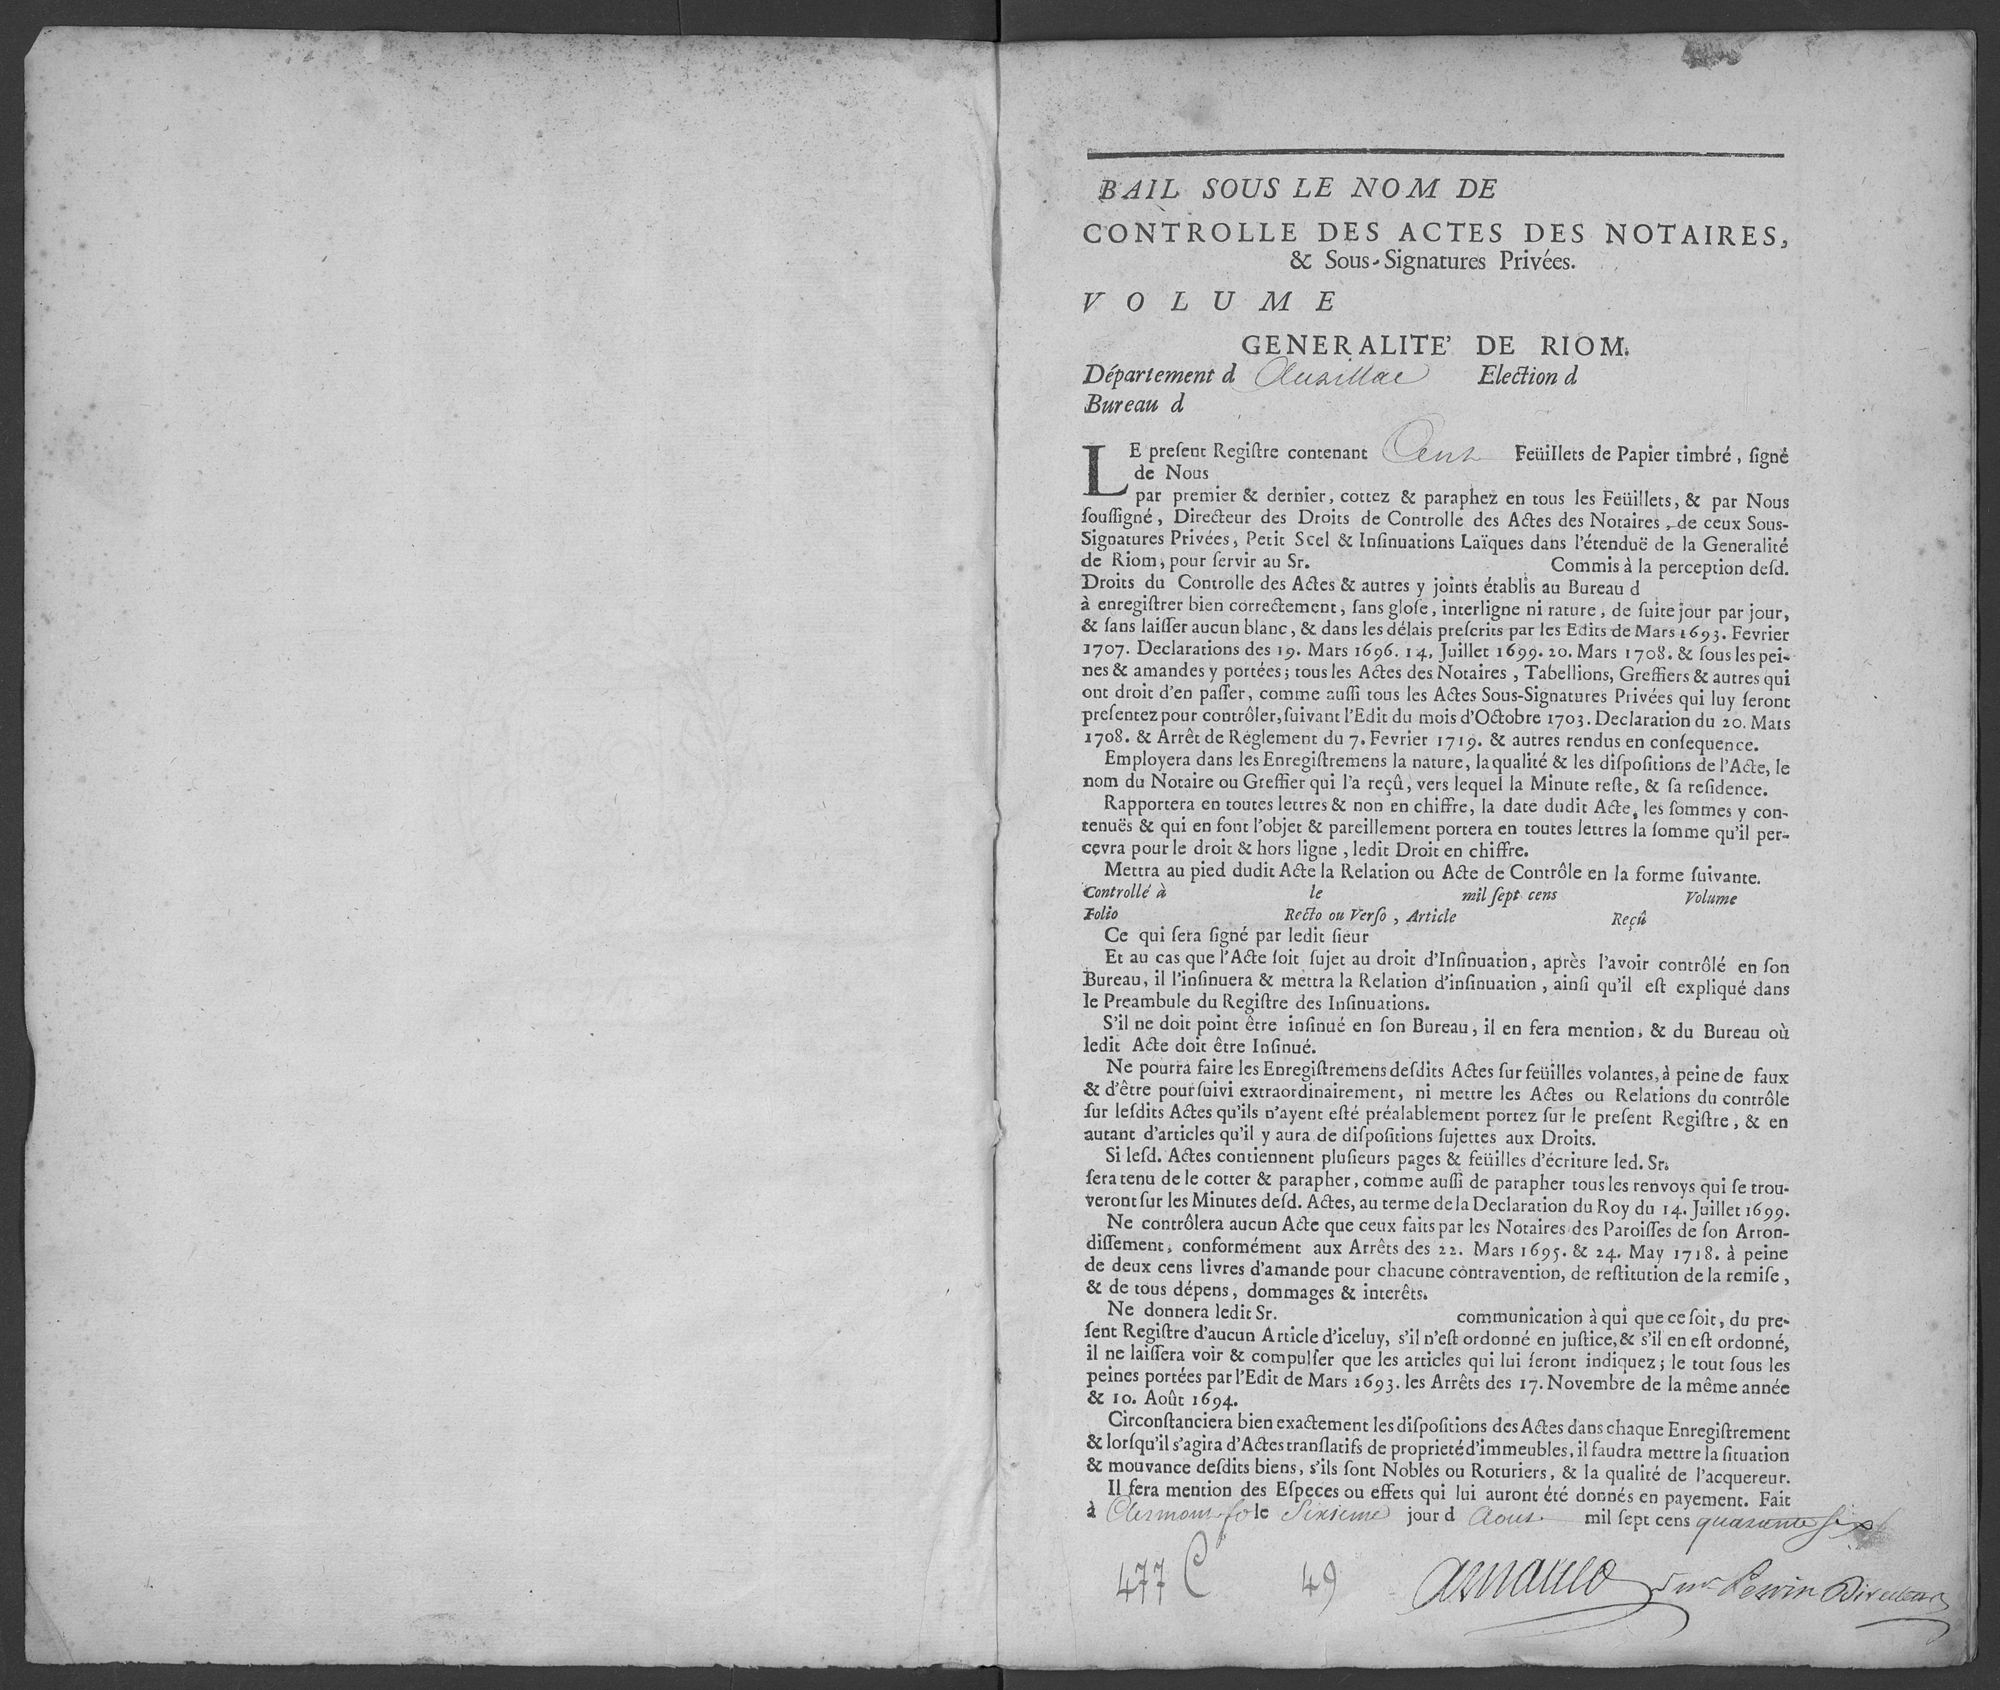 BAIL SOUS LE NOM DE
CONTROLLE DES ACTES DES NOTAIRES,
& Sous-Signatures Privées.
VOLUME
GENERALITE' DE RIOM.
Département d Aurillac Election d
Bureau d
LE preſent Regiſtre contenant Cent Feüillets de Papier timbré, ſigné
de Nous
par premier & dernier, cottez & paraphez en tous les Feüillets, & par Nous
ſouſſigné, Directeur des Droits de Controlle des Actes des Notaires, de ceux Sous-
Signatures Privées, Petit Scel & Inſinuations Laïques dans l'étenduë de la Generalité
de Riom, pour ſervir au Sr. Commis à la perception deſd.
Droits du Controlle des Actes & autres y joints établis au Bureau d
à enregiſtrer bien correctement, ſans gloſe, interligne ni rature, de ſuite jour par jour,
& ſans laiſſer aucun blanc, & dans les délais preſcrits par les Edits de Mars 1693. Fevrier
1707. Declarations des 19. Mars 1696. 14. Juillet 1699. 20. Mars 1708. & ſous les pei-
nes & amandes y portées; tous les Actes des Notaires, Tabellions, Greffiers & autres qui
ont droit d'en paſſer, comme auſſi tous les Actes Sous-Signatures Privées qui luy ſeront
preſentez pour contrôler, ſuivant l'Edit du mois d'Octobre 1703. Declaration du 20. Mars
1708. & Arrêt de Réglement du 7. Fevrier 1719. & autres rendus en conſequence.
Employera dans les Enregiſtremens la nature, la qualité & les diſpoſitions de l'Acte, le
nom du Notaire ou Greffier qui l'a reçû, vers lequel la Minute reſte, & ſa reſidence.
Rapportera en toutes lettres & non en chiffre, la date dudit Acte, les ſommes y con-
tenuës & qui en font l'objet & pareillement portera en toutes lettres la ſomme qu'il per-
cevra pour le droit & hors ligne, ledit Droit en chiffre.
Mettra au pied dudit Acte la Relation ou Acte de Contrôle en la forme ſuivante.
Controllé à le mil ſept cens Volume
Folio Recto ou Verſo, Article Reçû
Ce qui ſera ſigné par ledit ſieur
Et au cas que l'Acte ſoit ſujet au droit d'Inſinuation, après l'avoir contrôlé en ſon
Bureau, il l'inſinuera & mettra la Relation d'inſinuation, ainſi qu'il eſt expliqué dans
le Preambule du Regiſtre des Inſinuations.
S'il ne doit point être inſinué en ſon Bureau, il en fera mention, & du Bureau où
ledit Acte doit être Inſinué.
Ne pourra faire les Enregiſtremens deſdits Actes ſur feüilles volantes, à peine de faux
& d'être pourſuivi extraordinairement, ni mettre les Actes ou Relations du contrôle
ſur leſdits Actes qu'ils n'ayent eſté préalablement portez ſur le preſent Regiſtre, & en
autant d'articles qu'il y aura de diſpoſitions ſujettes aux Droits.
Si leſd. Actes contiennent pluſieurs pages & feüilles d'écriture led. Sr.
ſera tenu de le cotter & parapher, comme auſſi de parapher tous les renvoys qui ſe trou-
veront ſur les Minutes deſd. Actes, au terme de la Declaration du Roy du 14. Juillet 1699.
Ne contrôlera aucun Acte que ceux faits par les Notaires des Paroiſſes de ſon Arron-
diſſement, conformément aux Arrêts des 22. Mars 1695. & 24. May 1718. à peine
de deux cens livres d'amande pour chacune contravention, de reſtitution de la remiſe,
& de tous dépens, dommages & interêts.
Ne donnera ledit Sr. communication à qui que ce ſoit, du pre-
ſent Regiſtre d'aucun Article d'iceluy, s'il n'eſt ordonné en juſtice, & s'il en eſt ordonné,
il ne laiſſera voir & compulſer que les articles qui lui ſeront indiquez; le tout ſous les
peines portées par l'Edit de Mars 1693. les Arrêts des 17. Novembre de la même année
& 10. Août 1694.
Circonſtanciera bien exactement les diſpoſitions des Actes dans chaque Enregiſtrement
& lorſqu'il s'agira d'Actes tranſlatifs de proprieté d'immeubles, il faudra mettre la ſituation
& mouvance deſdits biens, s'ils ſont Nobles ou Roturiers, & la qualité de l'acquereur.
Il fera mention des Eſpeces ou effets qui lui auront été donnés en payement. Fait
à Clermont fd le Sixieme jour d Aout mil ſept cens quarante six
477 C 49 Arnauld Perrin Directeur